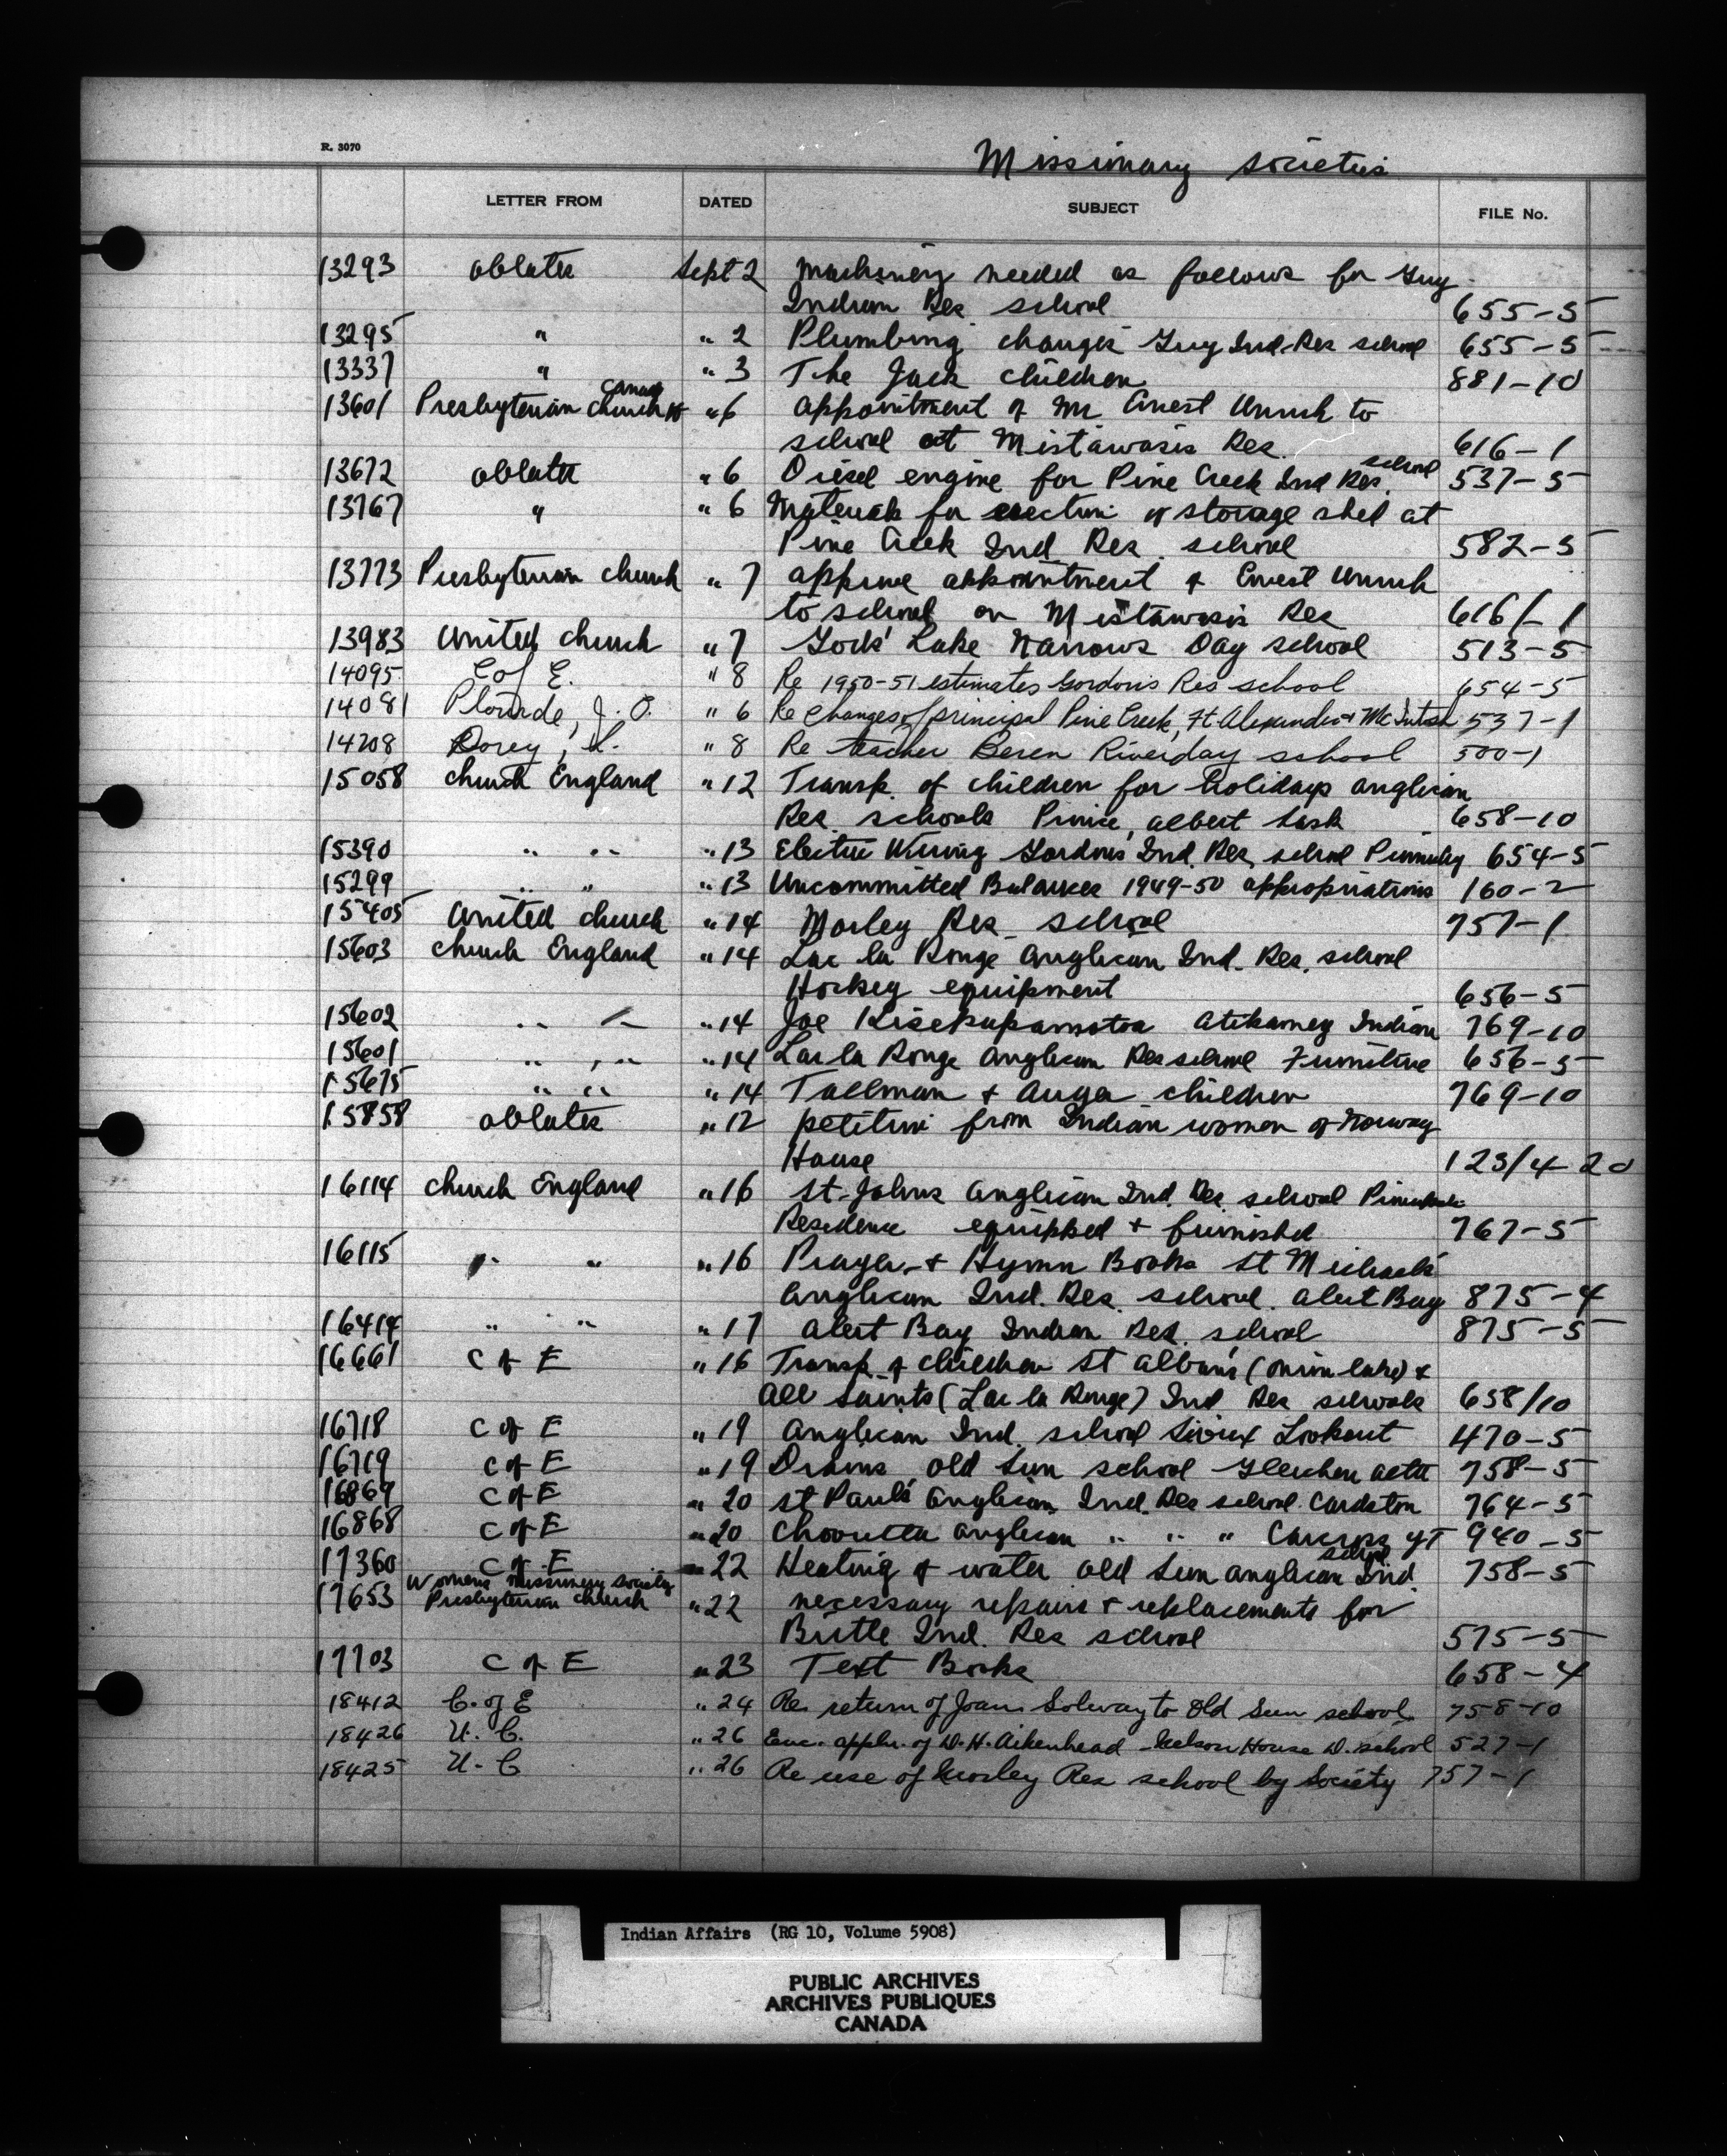 R. 3070
Missionary Societies
LETTER FROM DATED SUBJECT FILE No.
13293 Oblates Sept 2 Machinery needed as follows for Guy
Indian Res school 655-5
13295 " " 2 Plumbing changes Guy Ind. Res school 655-5
13337 " " 3 The Jack children 881-10
Canada
13601 Presbyterian Church " 6 appointment of Mr Ernest Unruh to
school at Mistawasis Res. 616-1
school
13672 Oblates " 6 Diesel engine for Pine Creek Ind Res. 537-5
13767 " " 6 Materials for erection of storage shed at
Pine Creek Ind Res. school 582-5
13773 Presbyterian church " 7 approve appointment of Ernest Unruh
to school on Mistawasis Res 616/-1
13983 United church " 7 Gods' Lake Narrows Day school 513-5
14095 C of E. " 8 Re 1950-51 estimates Gordon's Res school 654-5
14081 Plourde, J. O. " 6 Re changes of principal Pine Creek, Ft. Alexander + McIntosh 537-1
14208 Dorey, " 8 Re teacher Beren Riverday school 500-1
15058 church England " 12 Transp. of children for holidays anglican
Res. schools Prince Albert Sask 658-10
15390 " " " 13 Electric Wiring Gordons Ind. Res. school Punnichy 654-5
15299 " " " 13 Uncommitted Balances 1949-50 appropriations 160-2
15405 United church " 14 Morley Res. school 757-1
15603 church England " 14 Lac la Ronge Anglican Ind. Res. school
Hockey equipment 656-5
15602 " " " 14 Joe Atikameg Indian 769-10
15601 " " " 14 Lac la Ronge Anglican Res school Furniture 656-5
15675 " " " 14 Tallman + Auger children 769-10
15858 Oblates " 12 petition from Indian women of Norway
House 123/4-20
16114 church England " 16 St. Johns Anglican Ind. Res. school
Residence equipped + furnished 767-5
16115 " " " 16 Prayer + Hymn Books St Michaels'
Anglican Ind. Res. school. Alert Bay 875-4
16414 " " " 17 Alert Bay Indian Res. school 875-5
16661 C of E " 16 Transp of children St Alban's (Onion lake) +
All Saints (Lac la Ronge) Ind Res schools 658/10
16718 C of E " 19 Anglican Ind. school Sioux Lookout 470-5
16719 C of E " 19 Drains old Sun school Gleichen Alta 758-5
16869 C of E " 20 St Paul's Anglican Ind. Res school. Cardston 764-5
16868 C of E " 20 Chooutla Anglican " " " Carcross YT 940-5
school
17360 C of E " 22 Heating & water old Sun Anglican Ind. 758-5
Womens Missionary Society
17653 Presbyterian Church " 22 necessary repairs + replacements for
Birtle Ind. Res school 575-5
17703 C of E " 23 Text Books 658-4
18412 C. of E " 24 Re return of Joan Solway to Old Sun school. 758-10
18426 U. C. " 26 Enc. appln. of W. H. Aikenhead - Nelson House D. school 527-1
18425 U. C " 26 Re use of Morley Res school by Society 757-1
Indian Affairs (RG 10, Volume 5908)
PUBLIC ARCHIVES
ARCHIVES PUBLIQUES
CANADA